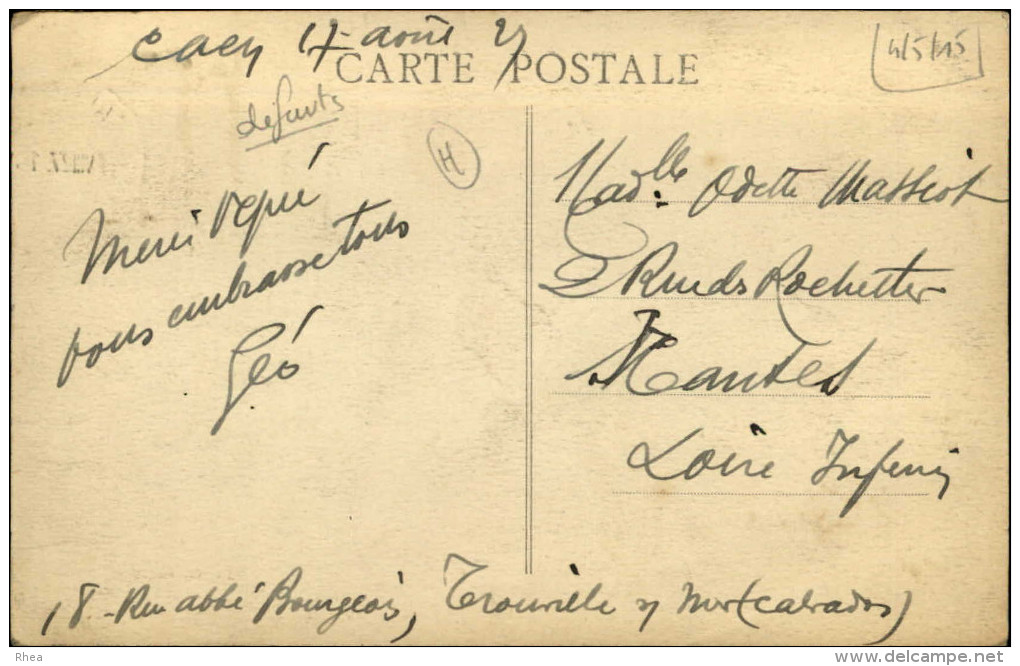 Caen 17 août 27
CARTE POSTALE
4/5/15
défauts
H
Merci Pépée
vous embrasse tous
Géo
Madlle Odette Massiot
2 Rue ds Rochettes
Nantes
Loire Inferi
18 - Rue abbé Bourgeois, Trouville s/ Mer (Calvados)
Rhea
www.delcampe.net